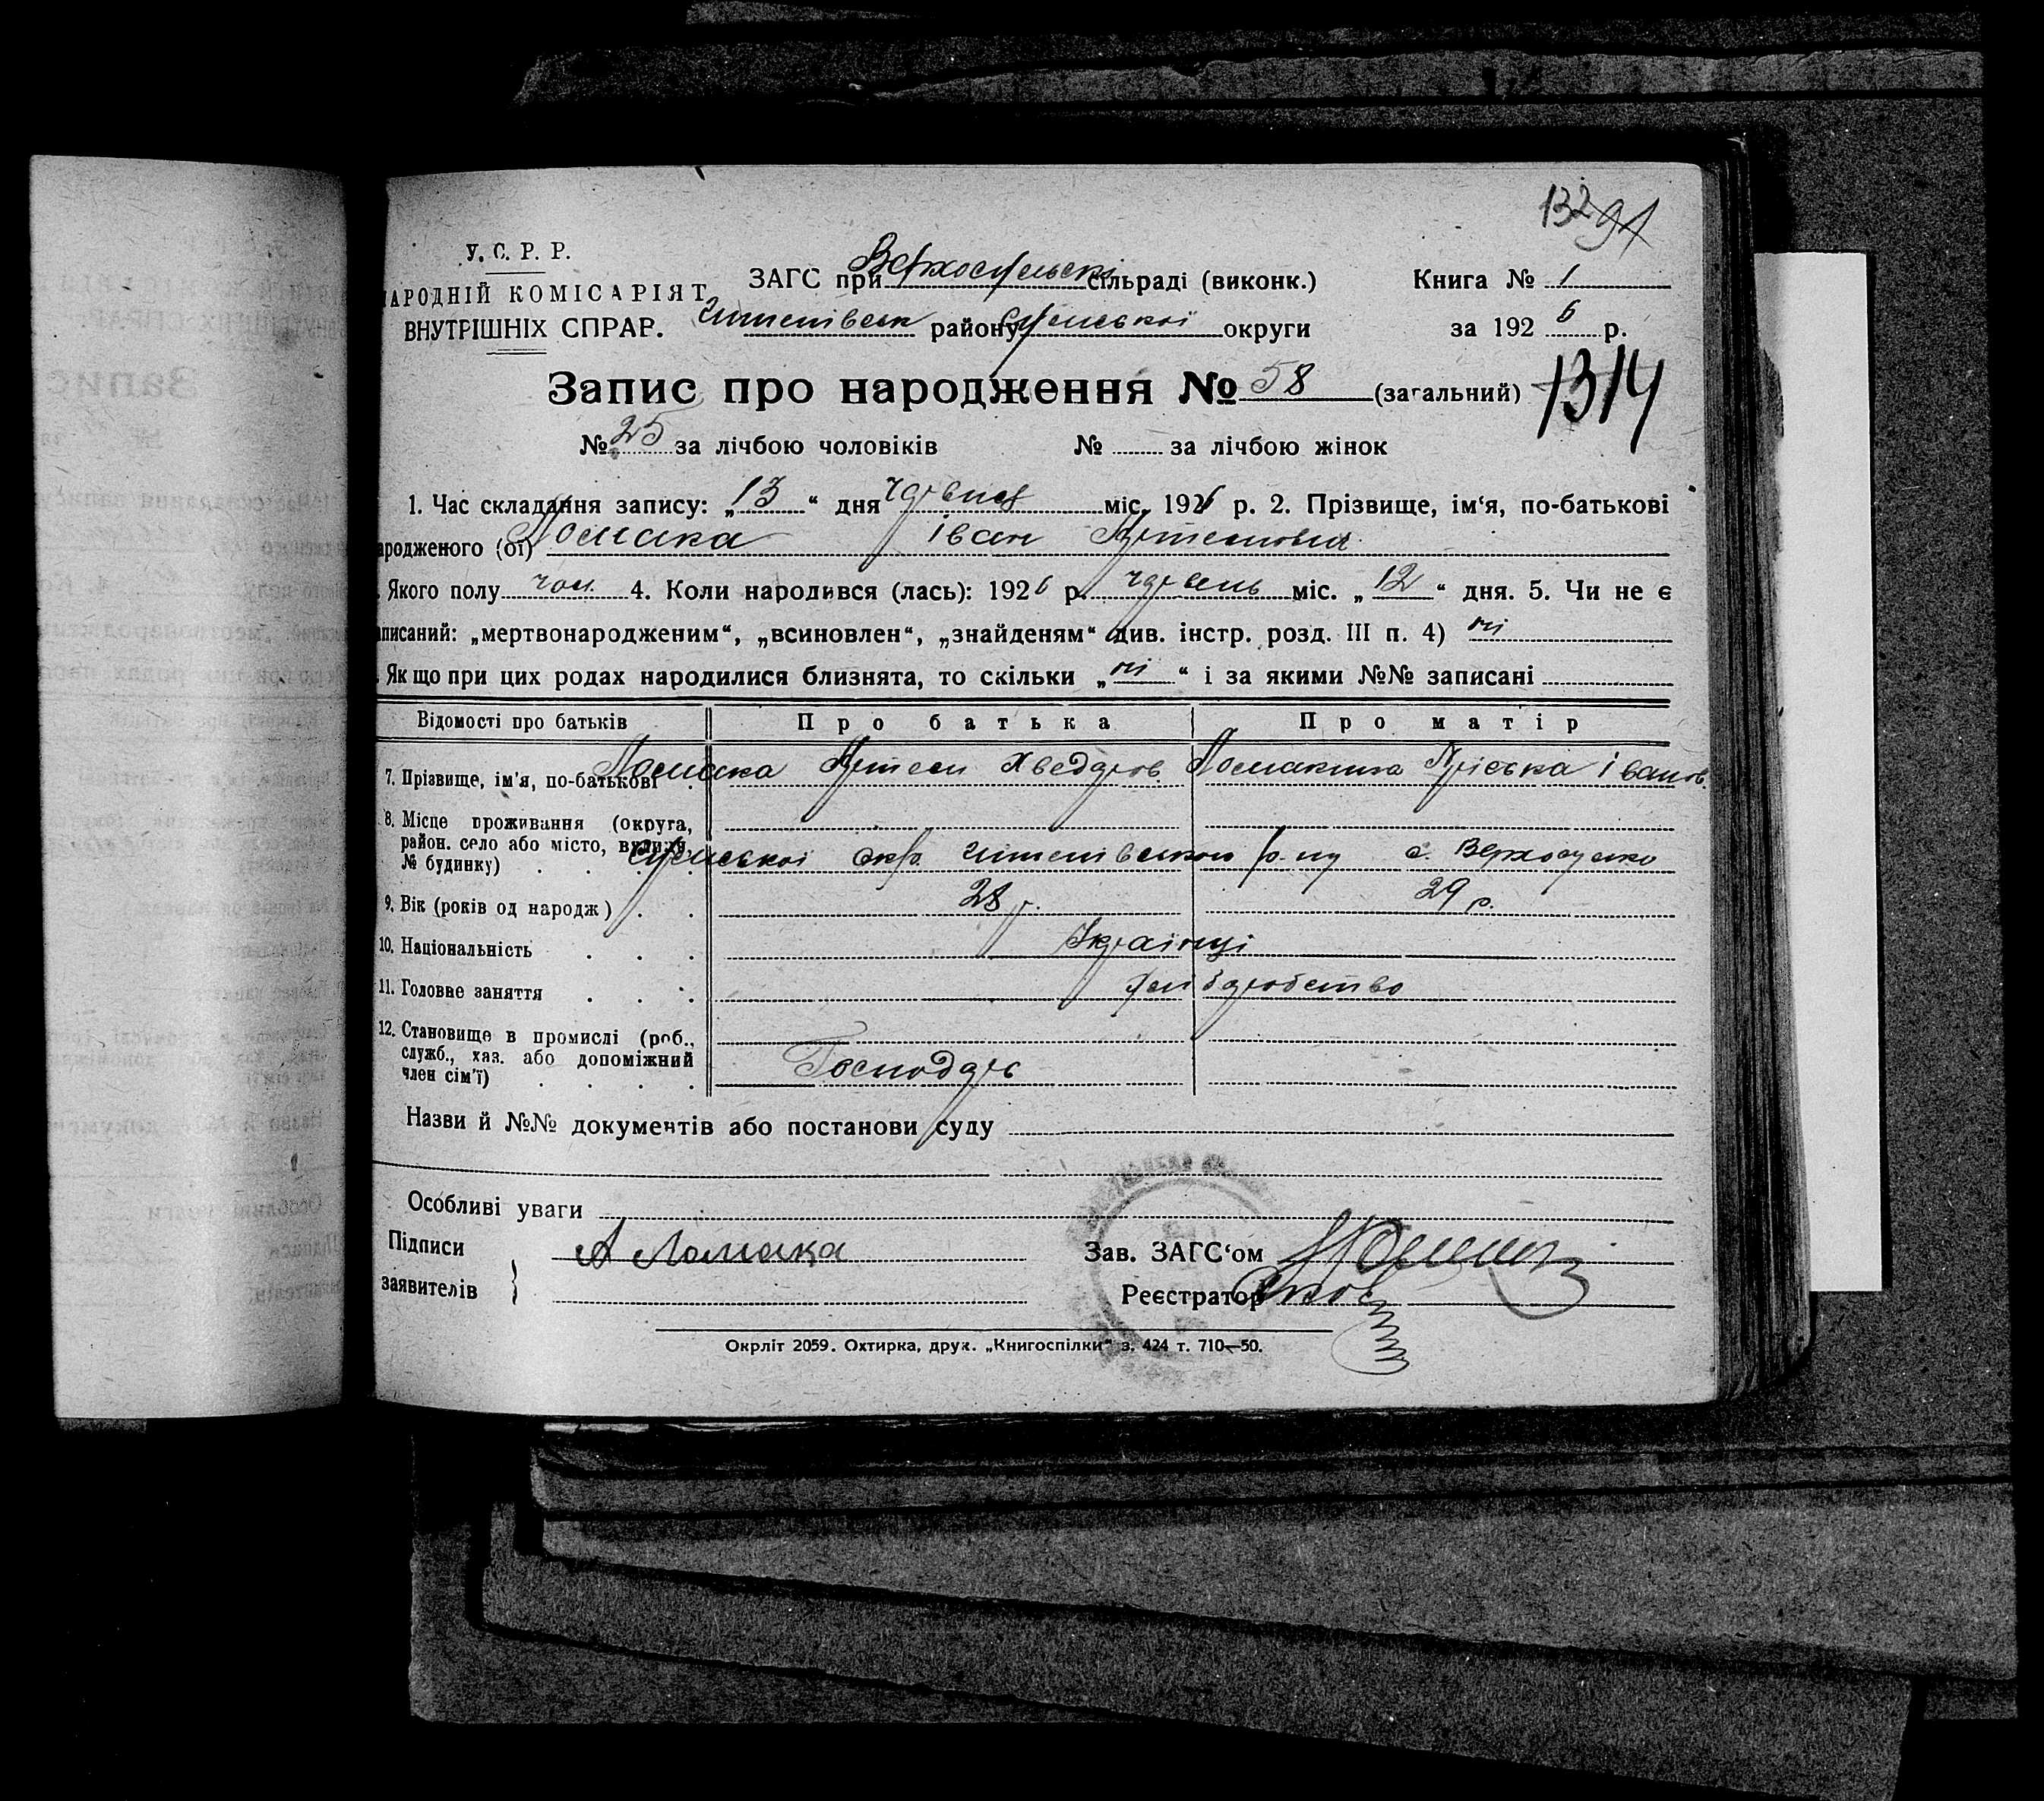 132 91
У. С. Р. Р.
АРОДНІЙ КОМІСАРІЯТ
ВНУТРІШНІХ СПРАР.
ЗАГС при Верхосульскі сільраді (виконк.)
Книга № 1
Штепівськ району Сумської округи
за 192 6 р.
Запис про народження № 58 (загальний)
1314
№ 25 за лічбою чоловіків № за лічбою жінок
1. Час складання запису: „13“ дня червня міс. 1926 р. 2. Прізвище, ім‘я, по-батькові
ародженого (ої) Ломака Іван Артемович
Якого полу чол. 4. Коли народився (лась): 1926 р. червень міс. „12“ дня. 5. Чи не є
аписаний: „мертвонародженим“, „всиновлен“, „знайденям“ див. інстр. розд. III п. 4) ні
Якщо при цих родах народилися близнята, то скільки „ні“ і за якими №№ записані
Відомості про батьків Про батька Про матір
7. Прізвище, ім'я, по-батькові Ломака Артем Хведоров. Ломакина Пріська Іванов.
8. Місце проживання (округа,
район. село або місто, вулиця,
№ будинку)
Сумської окр. Штепівського р-ну с. Верхосулка
9. Вік (років од народж) 28 р. 29 р.
10. Національність Українці
11. Головне заняття хліборобство
12. Становище в промислі (роб.,
служб., хаз. або допоміжний
член сім'ї)
Господарь
Назви й №№ документів або постанови суду
Особливі уваги
Підписи
заявителів }
А Ломака
Зав. ЗАГС‘ом
Реєстратор
Окрліт 2059. Охтирка, друк. „Книгоспілки“ з. 424 т. 710—50.